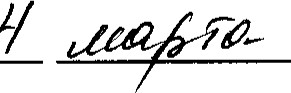 4 марта